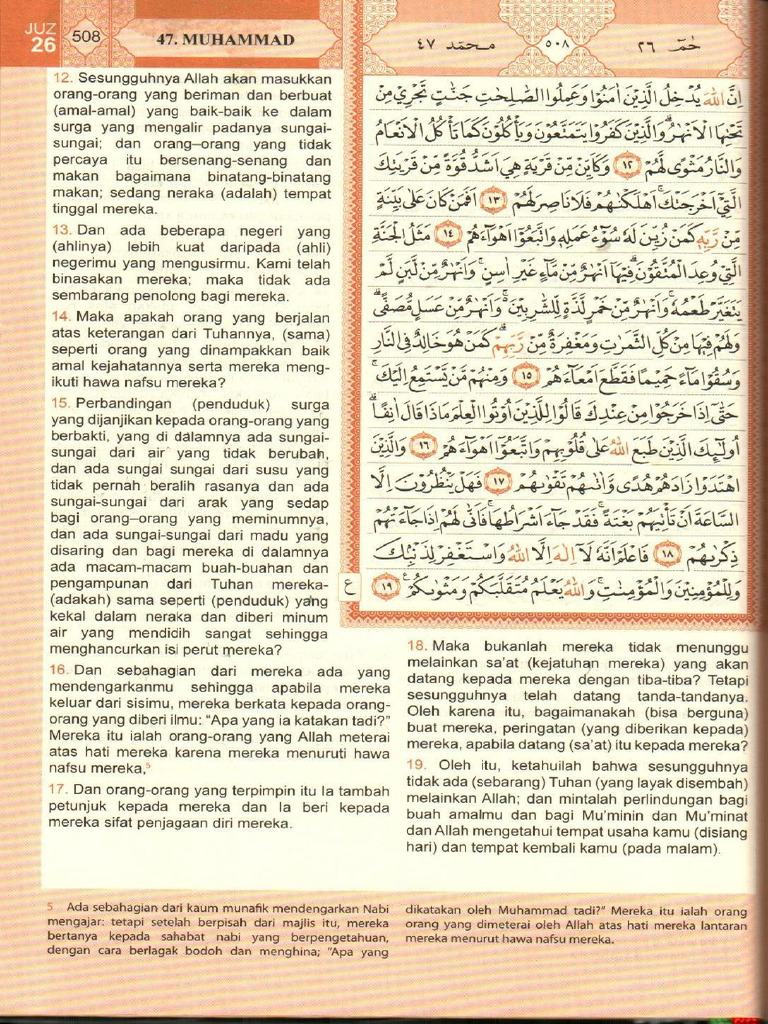 JUZ 26
508
47. MUHAMMAD
محمد ٤٧
٥٠٨
حٰمۤ ٢٦
12. Sesungguhnya Allah akan masukkan
orang-orang yang beriman dan berbuat
(amal-amal) yang baik-baik ke dalam
surga yang mengalir padanya sungai-
sungai; dan orang–orang yang tidak
percaya itu bersenang-senang dan
makan bagaimana binatang-binatang
makan; sedang neraka (adalah) tempat
tinggal mereka.
13. Dan ada beberapa negeri yang
(ahlinya) lebih kuat daripada (ahli)
negerimu yang mengusirmu. Kami telah
binasakan mereka; maka tidak ada
sembarang penolong bagi mereka.
14. Maka apakah orang yang berjalan
atas keterangan dari Tuhannya, (sama)
seperti orang yang dinampakkan baik
amal kejahatannya serta mereka meng-
ikuti hawa nafsu mereka?
15. Perbandingan (penduduk) surga
yang dijanjikan kepada orang-orang yang
berbakti, yang di dalamnya ada sungai-
sungai dari air yang tidak berubah,
dan ada sungai sungai dari susu yang
tidak pernah beralih rasanya dan ada
sungai-sungai dari arak yang sedap
bagi orang–orang yang meminumnya,
dan ada sungai-sungai dari madu yang
disaring dan bagi mereka di dalamnya
ada macam-macam buah-buahan dan
pengampunan dari Tuhan mereka-
(adakah) sama seperti (penduduk) yang
kekal dalam neraka dan diberi minum
air yang mendidih sangat sehingga
menghancurkan isi perut mereka?
16. Dan sebahagian dari mereka ada yang
mendengarkanmu sehingga apabila mereka
keluar dari sisimu, mereka berkata kepada orang-
orang yang diberi ilmu: “Apa yang ia katakan tadi?”
Mereka itu ialah orang-orang yang Allah meterai
atas hati mereka karena mereka menuruti hawa
nafsu mereka,⁵
17. Dan orang-orang yang terpimpin itu Ia tambah
petunjuk kepada mereka dan Ia beri kepada
mereka sifat penjagaan diri mereka.
اِنَّ اللّٰهَ يُدْخِلُ الَّذِيْنَ اٰمَنُوْا وَعَمِلُوا الصّٰلِحٰتِ جَنّٰتٍ تَجْرِيْ مِنْ
تَحْتِهَا الْاَنْهٰرُ ۗوَالَّذِيْنَ كَفَرُوْا يَتَمَتَّعُوْنَ وَيَأْكُلُوْنَ كَمَا تَأْكُلُ الْاَنْعَامُ
وَالنَّارُ مَثْوًى لَّهُمْ ١٢ وَكَاَيِّنْ مِّنْ قَرْيَةٍ هِيَ اَشَدُّ قُوَّةً مِّنْ قَرْيَتِكَ
الَّتِيْٓ اَخْرَجَتْكَ ۚاَهْلَكْنٰهُمْ فَلَا نَاصِرَ لَهُمْ ١٣ اَفَمَنْ كَانَ عَلٰى بَيِّنَةٍ
مِّنْ رَّبِّهٖ كَمَنْ زُيِّنَ لَهٗ سُوْۤءُ عَمَلِهٖ وَاتَّبَعُوْٓا اَهْوَاۤءَهُمْ ١٤ مَثَلُ الْجَنَّةِ
الَّتِيْ وُعِدَ الْمُتَّقُوْنَ ۗفِيْهَآ اَنْهٰرٌ مِّنْ مَّاۤءٍ غَيْرِ اٰسِنٍ ۚوَاَنْهٰرٌ مِّنْ لَّبَنٍ لَّمْ
يَتَغَيَّرْ طَعْمُهٗ ۚوَاَنْهٰرٌ مِّنْ خَمْرٍ لَّذَّةٍ لِّلشّٰرِبِيْنَ ەۚ وَاَنْهٰرٌ مِّنْ عَسَلٍ مُّصَفًّى ۗ
وَلَهُمْ فِيْهَا مِنْ كُلِّ الثَّمَرٰتِ وَمَغْفِرَةٌ مِّنْ رَّبِّهِمْ ۗ كَمَنْ هُوَ خَالِدٌ فِى النَّارِ
وَسُقُوْا مَاۤءً حَمِيْمًا فَقَطَّعَ اَمْعَاۤءَهُمْ ١٥ وَمِنْهُمْ مَّنْ يَّسْتَمِعُ اِلَيْكَ ۚ
حَتّٰىٓ اِذَا خَرَجُوْا مِنْ عِنْدِكَ قَالُوْا لِلَّذِيْنَ اُوْتُوا الْعِلْمَ مَاذَا قَالَ اٰنِفًا ۗ
اُولٰۤىِٕكَ الَّذِيْنَ طَبَعَ اللّٰهُ عَلٰى قُلُوْبِهِمْ وَاتَّبَعُوْٓا اَهْوَاۤءَهُمْ ١٦ وَالَّذِيْنَ
اهْتَدَوْا زَادَهُمْ هُدًى وَّاٰتٰىهُمْ تَقْوٰىهُمْ ١٧ فَهَلْ يَنْظُرُوْنَ اِلَّا
السَّاعَةَ اَنْ تَأْتِيَهُمْ بَغْتَةً ۚ فَقَدْ جَاۤءَ اَشْرَاطُهَا ۚ فَاَنّٰى لَهُمْ اِذَا جَاۤءَتْهُمْ
ذِكْرٰىهُمْ ١٨ فَاعْلَمْ اَنَّهٗ لَآ اِلٰهَ اِلَّا اللّٰهُ وَاسْتَغْفِرْ لِذَنْۢبِكَ
وَلِلْمُؤْمِنِيْنَ وَالْمُؤْمِنٰتِ ۚوَاللّٰهُ يَعْلَمُ مُتَقَلَّبَكُمْ وَمَثْوٰىكُمْ ۚ ١٩
ع
18. Maka bukanlah mereka tidak menunggu
melainkan sa’at (kejatuhan mereka) yang akan
datang kepada mereka dengan tiba-tiba? Tetapi
sesungguhnya telah datang tanda-tandanya.
Oleh karena itu, bagaimanakah (bisa berguna)
buat mereka, peringatan (yang diberikan kepada)
mereka, apabila datang (sa’at) itu kepada mereka?
19. Oleh itu, ketahuilah bahwa sesungguhnya
tidak ada (sebarang) Tuhan (yang layak disembah)
melainkan Allah; dan mintalah perlindungan bagi
buah amalmu dan bagi Mu’minin dan Mu’minat
dan Allah mengetahui tempat usaha kamu (disiang
hari) dan tempat kembali kamu (pada malam).
5 Ada sebahagian dari kaum munafik mendengarkan Nabi
mengajar: tetapi setelah berpisah dari majlis itu, mereka
bertanya kepada sahabat nabi yang berpengetahuan,
dengan cara berlagak bodoh dan menghina; “Apa yang
dikatakan oleh Muhammad tadi?” Mereka itu ialah orang
orang yang dimeterai oleh Allah atas hati mereka lantaran
mereka menurut hawa nafsu mereka.